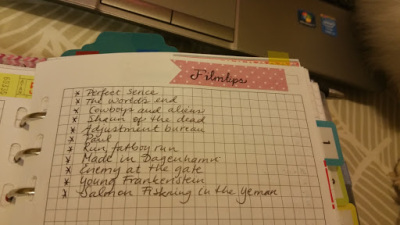 Filmtips
x Perfect sence
x The world's end
x Cowboys and aliens
x Shaun of the dead
x Adjustment bureau
x Paul
x Run, fatboy run
x Made in Dagenham
x Enemy at the gate
x Young Frankenstein
x Salmon Fishering in the Yeman